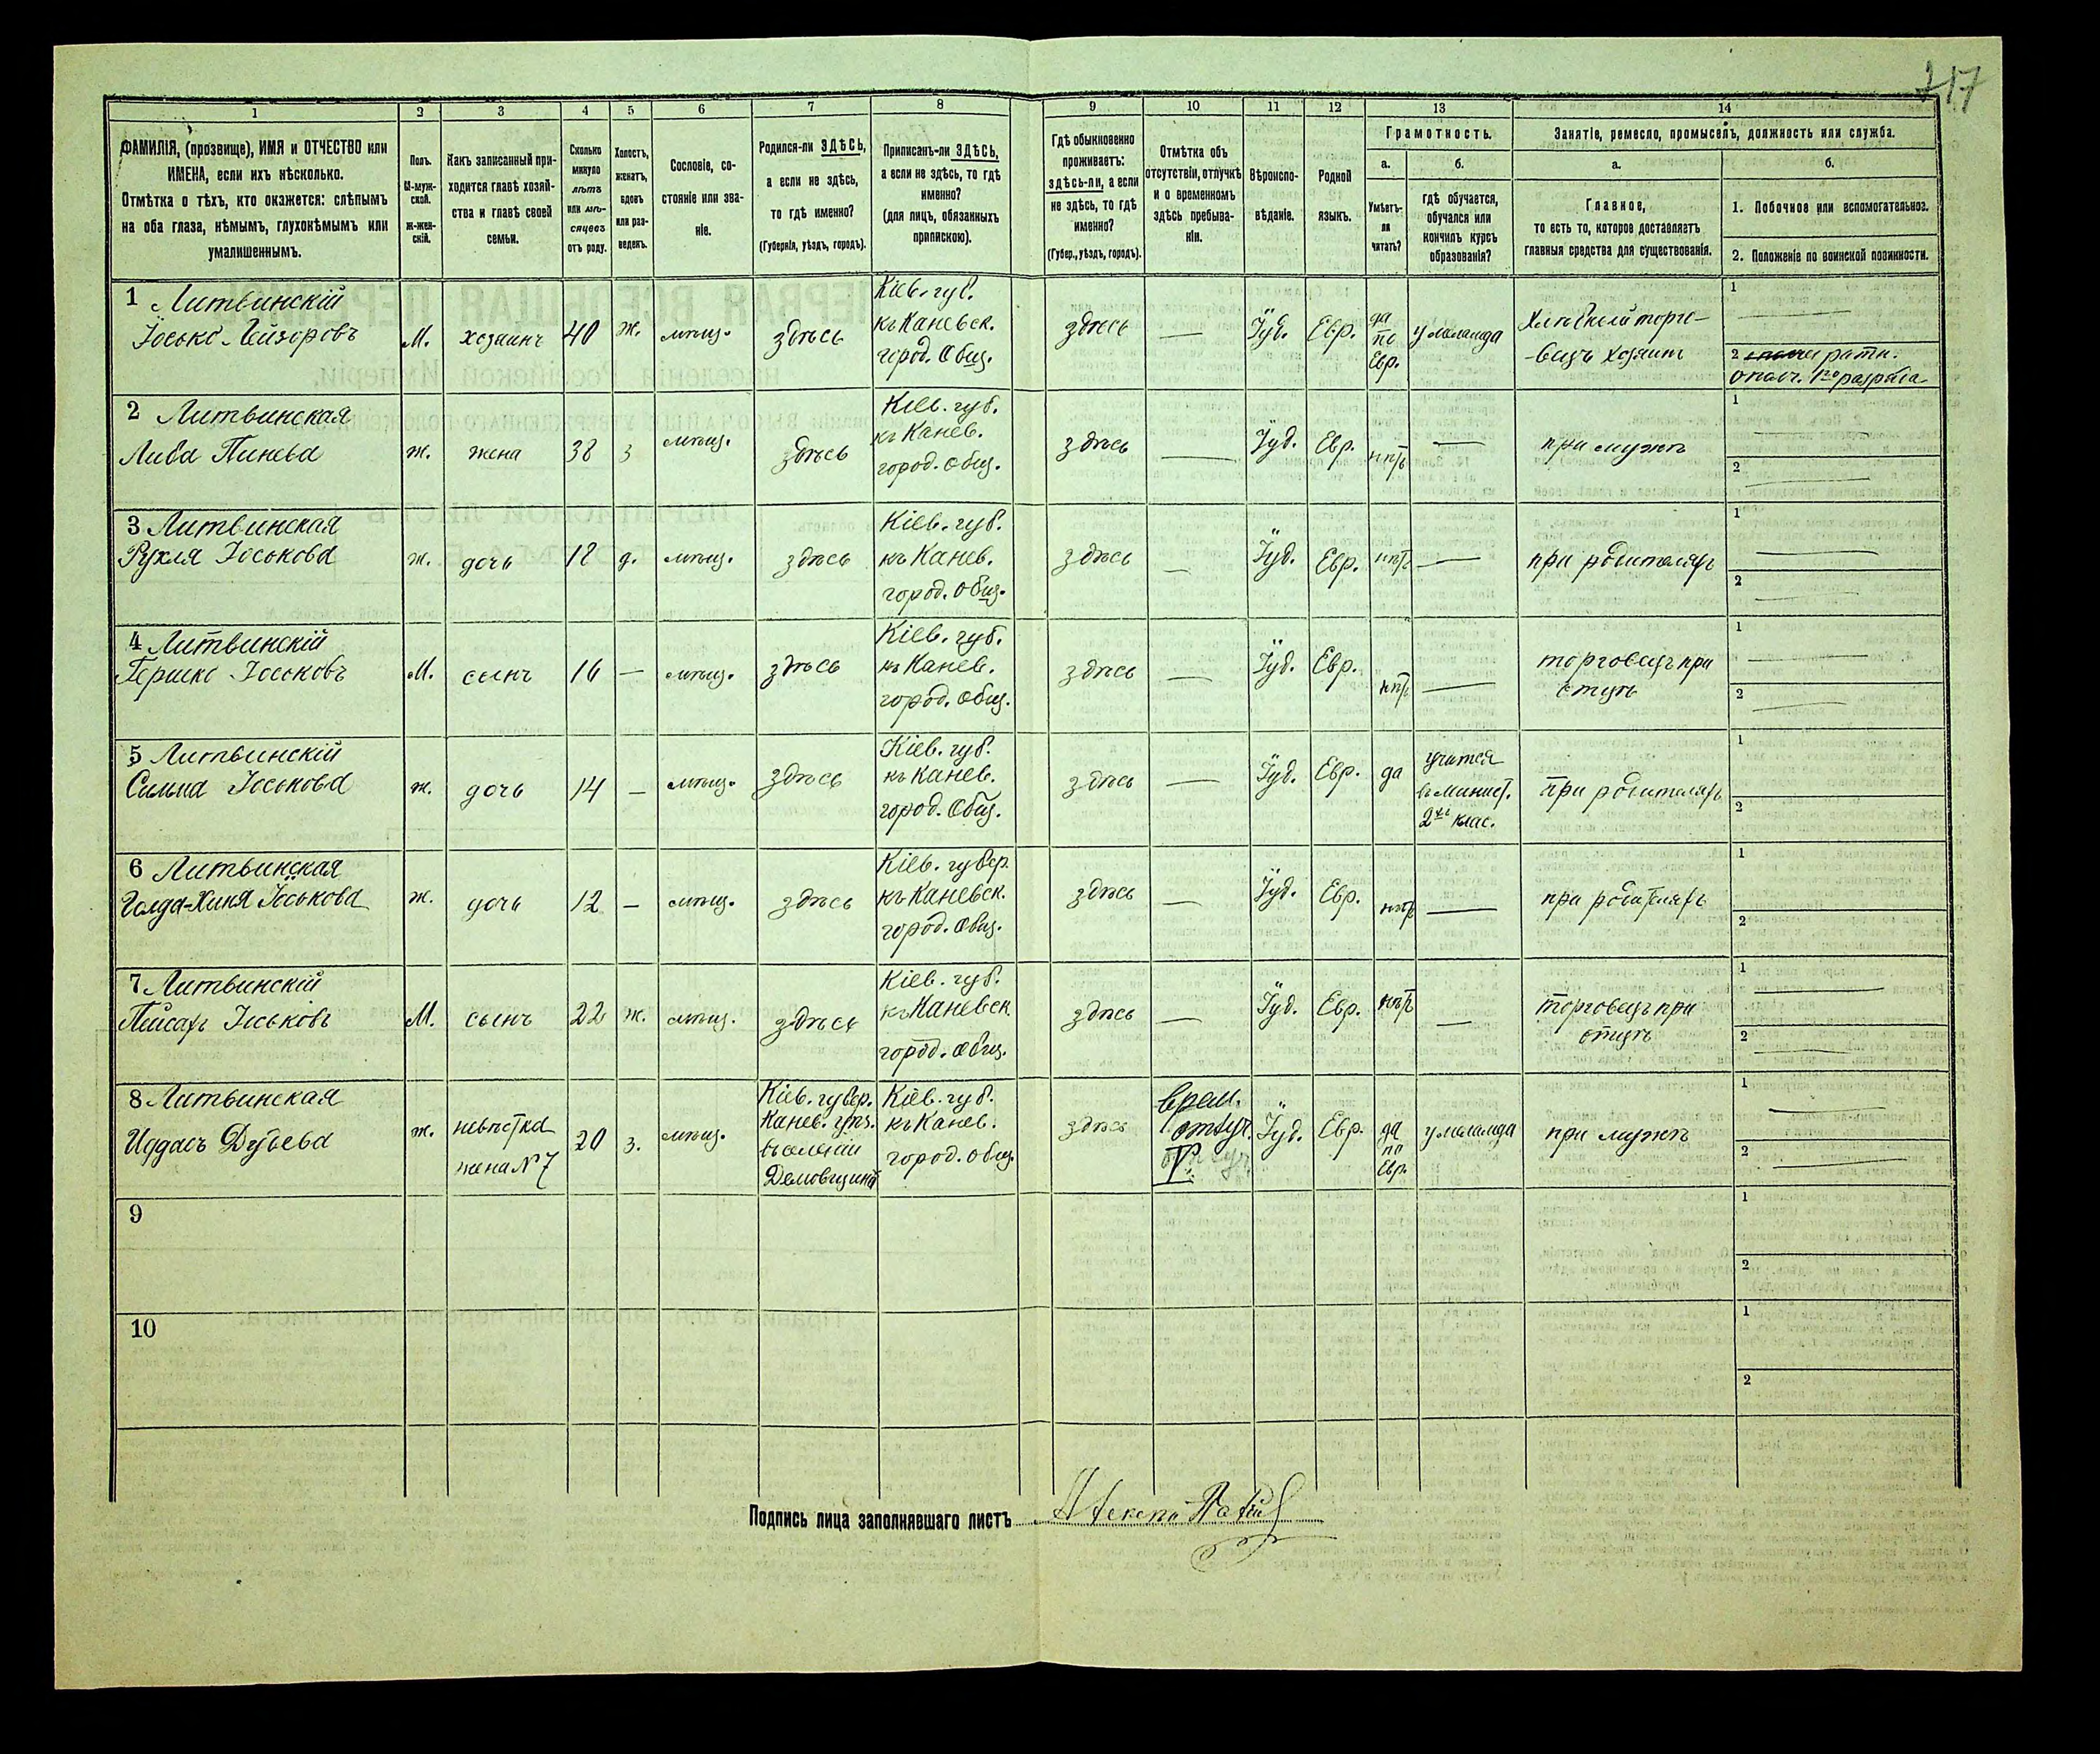 217
1
2
3
4
5
6
7
8
9
10
11
12
13
14
ФАМИЛІЯ, (прозвище), ИМЯ и ОТЧЕСТВО или
ИМЕНА, если ихъ нѣсколько.
Отмѣтка о тѣхъ, кто окажется: слѣпымъ
на оба глаза, нѣмымъ, глухонѣмымъ или
умалишеннымъ.
Полъ.
М-муж-
ской.
Ж-жен-
скій.
Какъ записанный при-
ходится главѣ хозяй-
ства и главѣ своей
семьи.
Сколько
минуло
лѣтъ
или мѣ-
сяцевъ
отъ роду.
Холостъ,
женатъ,
вдовъ
или раз-
веденъ.
Сословіе, со-
стояніе или зва-
ніе.
Родился-ли ЗДѢСЬ,
а если не здѣсь,
то гдѣ именно?
(Губернія, уѣздъ, городъ).
Приписанъ-ли ЗДѢСЬ,
а если не здѣсь, то гдѣ
именно?
(для лицъ, обязанныхъ
припискою).
Гдѣ обыкновенно
проживаетъ:
здѣсь-ли, а если
не здѣсь, то гдѣ
именно?
(Губер., уѣздъ, городъ).
Отмѣтка объ
отсутствіи, отлучкѣ
и о временномъ
здѣсь пребыва-
ніи.
Вѣроиспо-
вѣданіе.
Родной
языкъ.
Грамотность.
а.
Умѣетъ-
ли
читать?
б.
гдѣ обучается,
обучался или
кончилъ курсъ
образованія?
Занятіе, ремесло, промыселъ, должность или служба.
а.
Главное,
то есть то, которое доставляетъ
главныя средства для существованія.
б.
1. Побочное или вспомогательное.
2. Положеніе по воинской повинности.
1 Литвинскій
Іосько Лейзоровъ
М.
хозяинъ
40
ж.
мѣщ.
здѣсь
Кіев. губ.
къ Каневск.
город. Общ.
здѣсь
—
Іуд.
Евр.
да
по
Евр.
у меламда
Хлѣбный торго-
-вецъ хозяинъ
1
2 ратн.
опол. 1го разряда
2 Литвинская
Лива Пинева
ж.
жена
38
з
мѣщ.
здѣсь
Кіев. губ.
къ Канев.
город. общ.
здѣсь
—
Іуд.
Евр.
нѣтъ
—
при мужѣ
1
2
3 Литвинская
Рухля Іоськова
ж.
дочь
18
д.
мѣщ.
здѣсь
Кіев. губ.
къ Канев.
город. общ.
здѣсь
—
Іуд.
Евр.
нѣтъ
—
при родителяхъ
1
2
4 Литвинскій
Гершко Іоськовъ
М.
сынъ
16
—
мѣщ.
здѣсь
Кіев. губ.
къ Канев.
город. общ.
здѣсь
—
Іуд.
Евр.
нѣтъ
—
торговецъ при
отцѣ
1
2
5 Литвинскій
Іоськова
ж.
дочь
14
—
мѣщ.
здѣсь
Кіев. губ.
къ Канев.
город. общ.
здѣсь
—
Іуд.
Евр.
да
учится
въ минист.
2хъ клас.
при родителяхъ
1
2
6 Литвинская
Голда-Хиня Іоськова
ж.
дочь
12
—
мѣщ.
здѣсь
Кіев. губер.
къ Каневск.
город. общ.
здѣсь
—
Іуд.
Евр.
нѣтъ
—
при родителяхъ
1
2
7 Литвинскій
Пейсахъ Іоськовъ
М.
сынъ
22
ж.
мѣщ.
здѣсь
Кіев. губ.
къ Каневск.
город. общ.
здѣсь
—
Іуд.
Евр.
нѣтъ
—
торговецъ при
отцѣ
1
2
8 Литвинская
ж.
невѣстка
жена №7
20
з.
мѣщ.
Кіев. губер.
Канев. уѣз.
въ селеніи
Демовщинѣ
Кіев. губ.
къ Канев.
город. общ.
здѣсь
врем.
отлуч.
Іуд.
Евр.
да
по
Евр.
у меламда
при мужѣ
1
2
9
1
2
10
1
2
Подпись лица заполнявшаго листъ